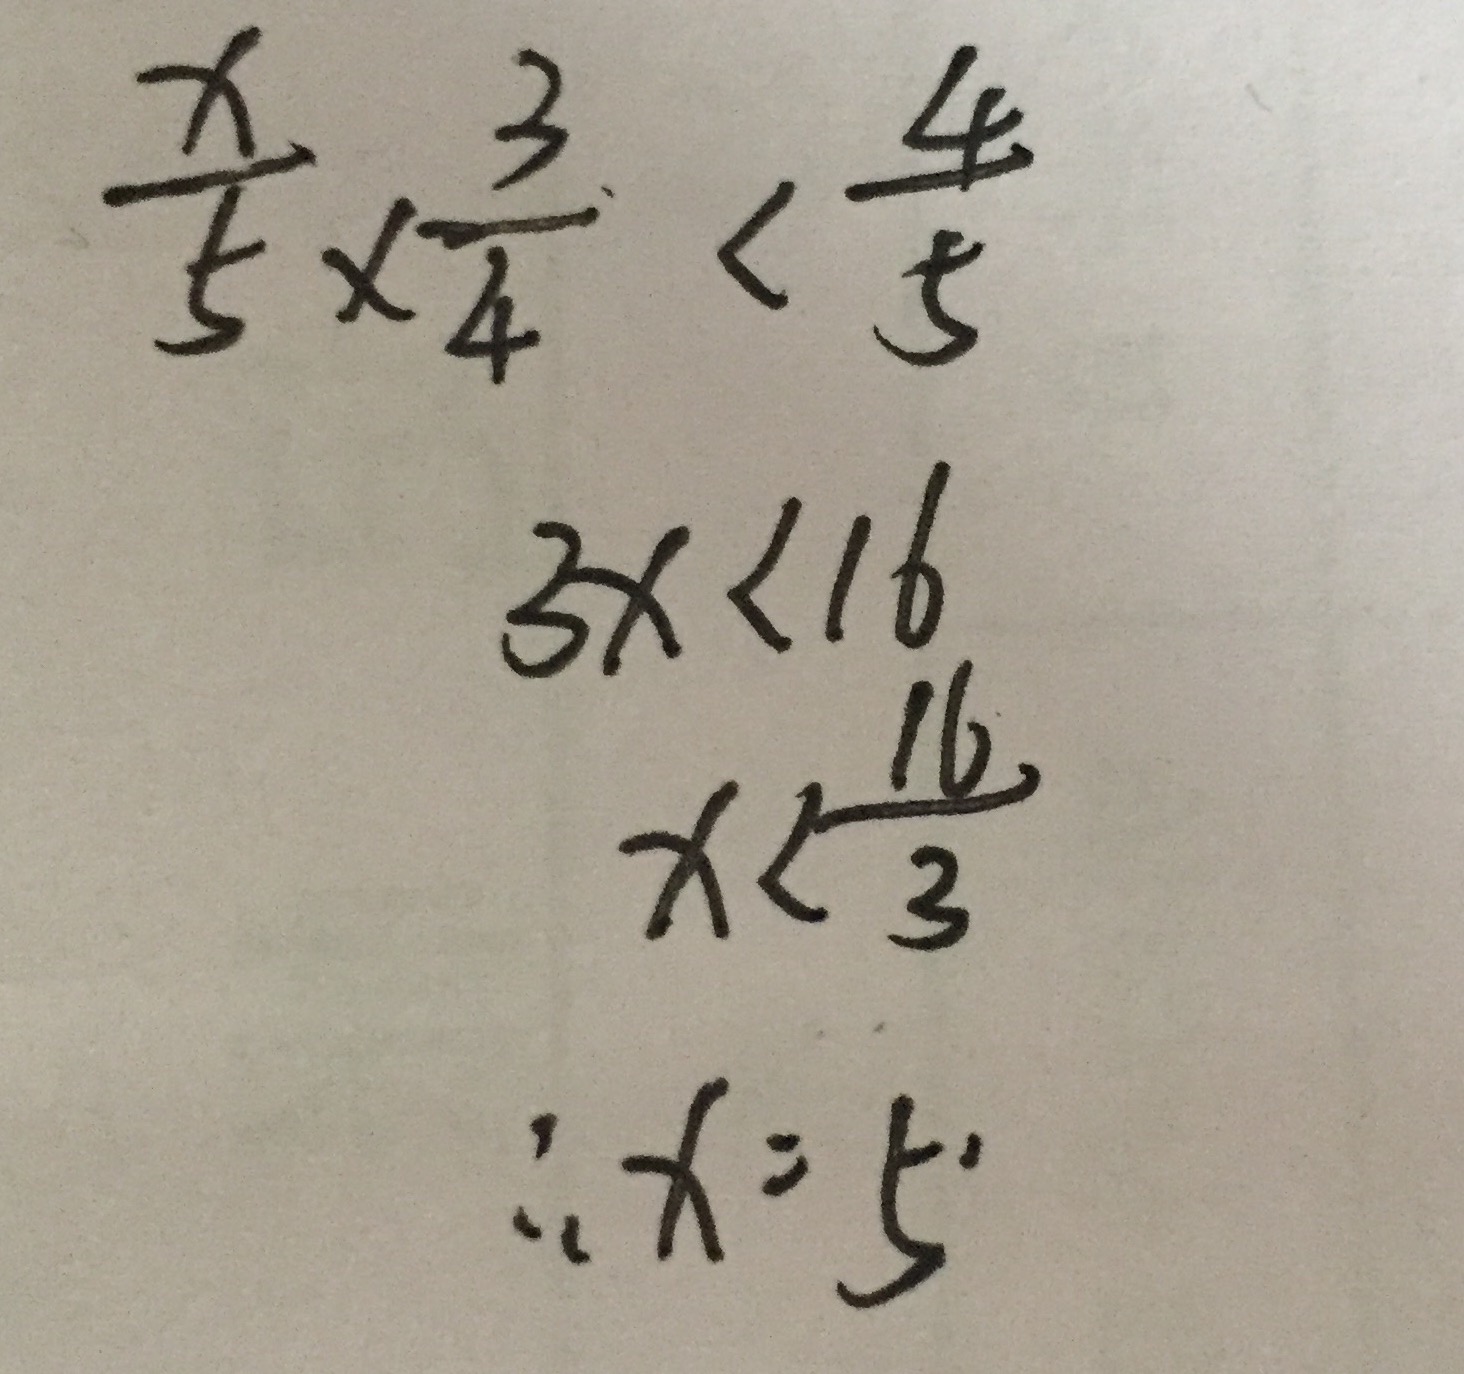 x/5 × 3/4 < 4/5
3x < 16
x < 16/3
∴ x = 5